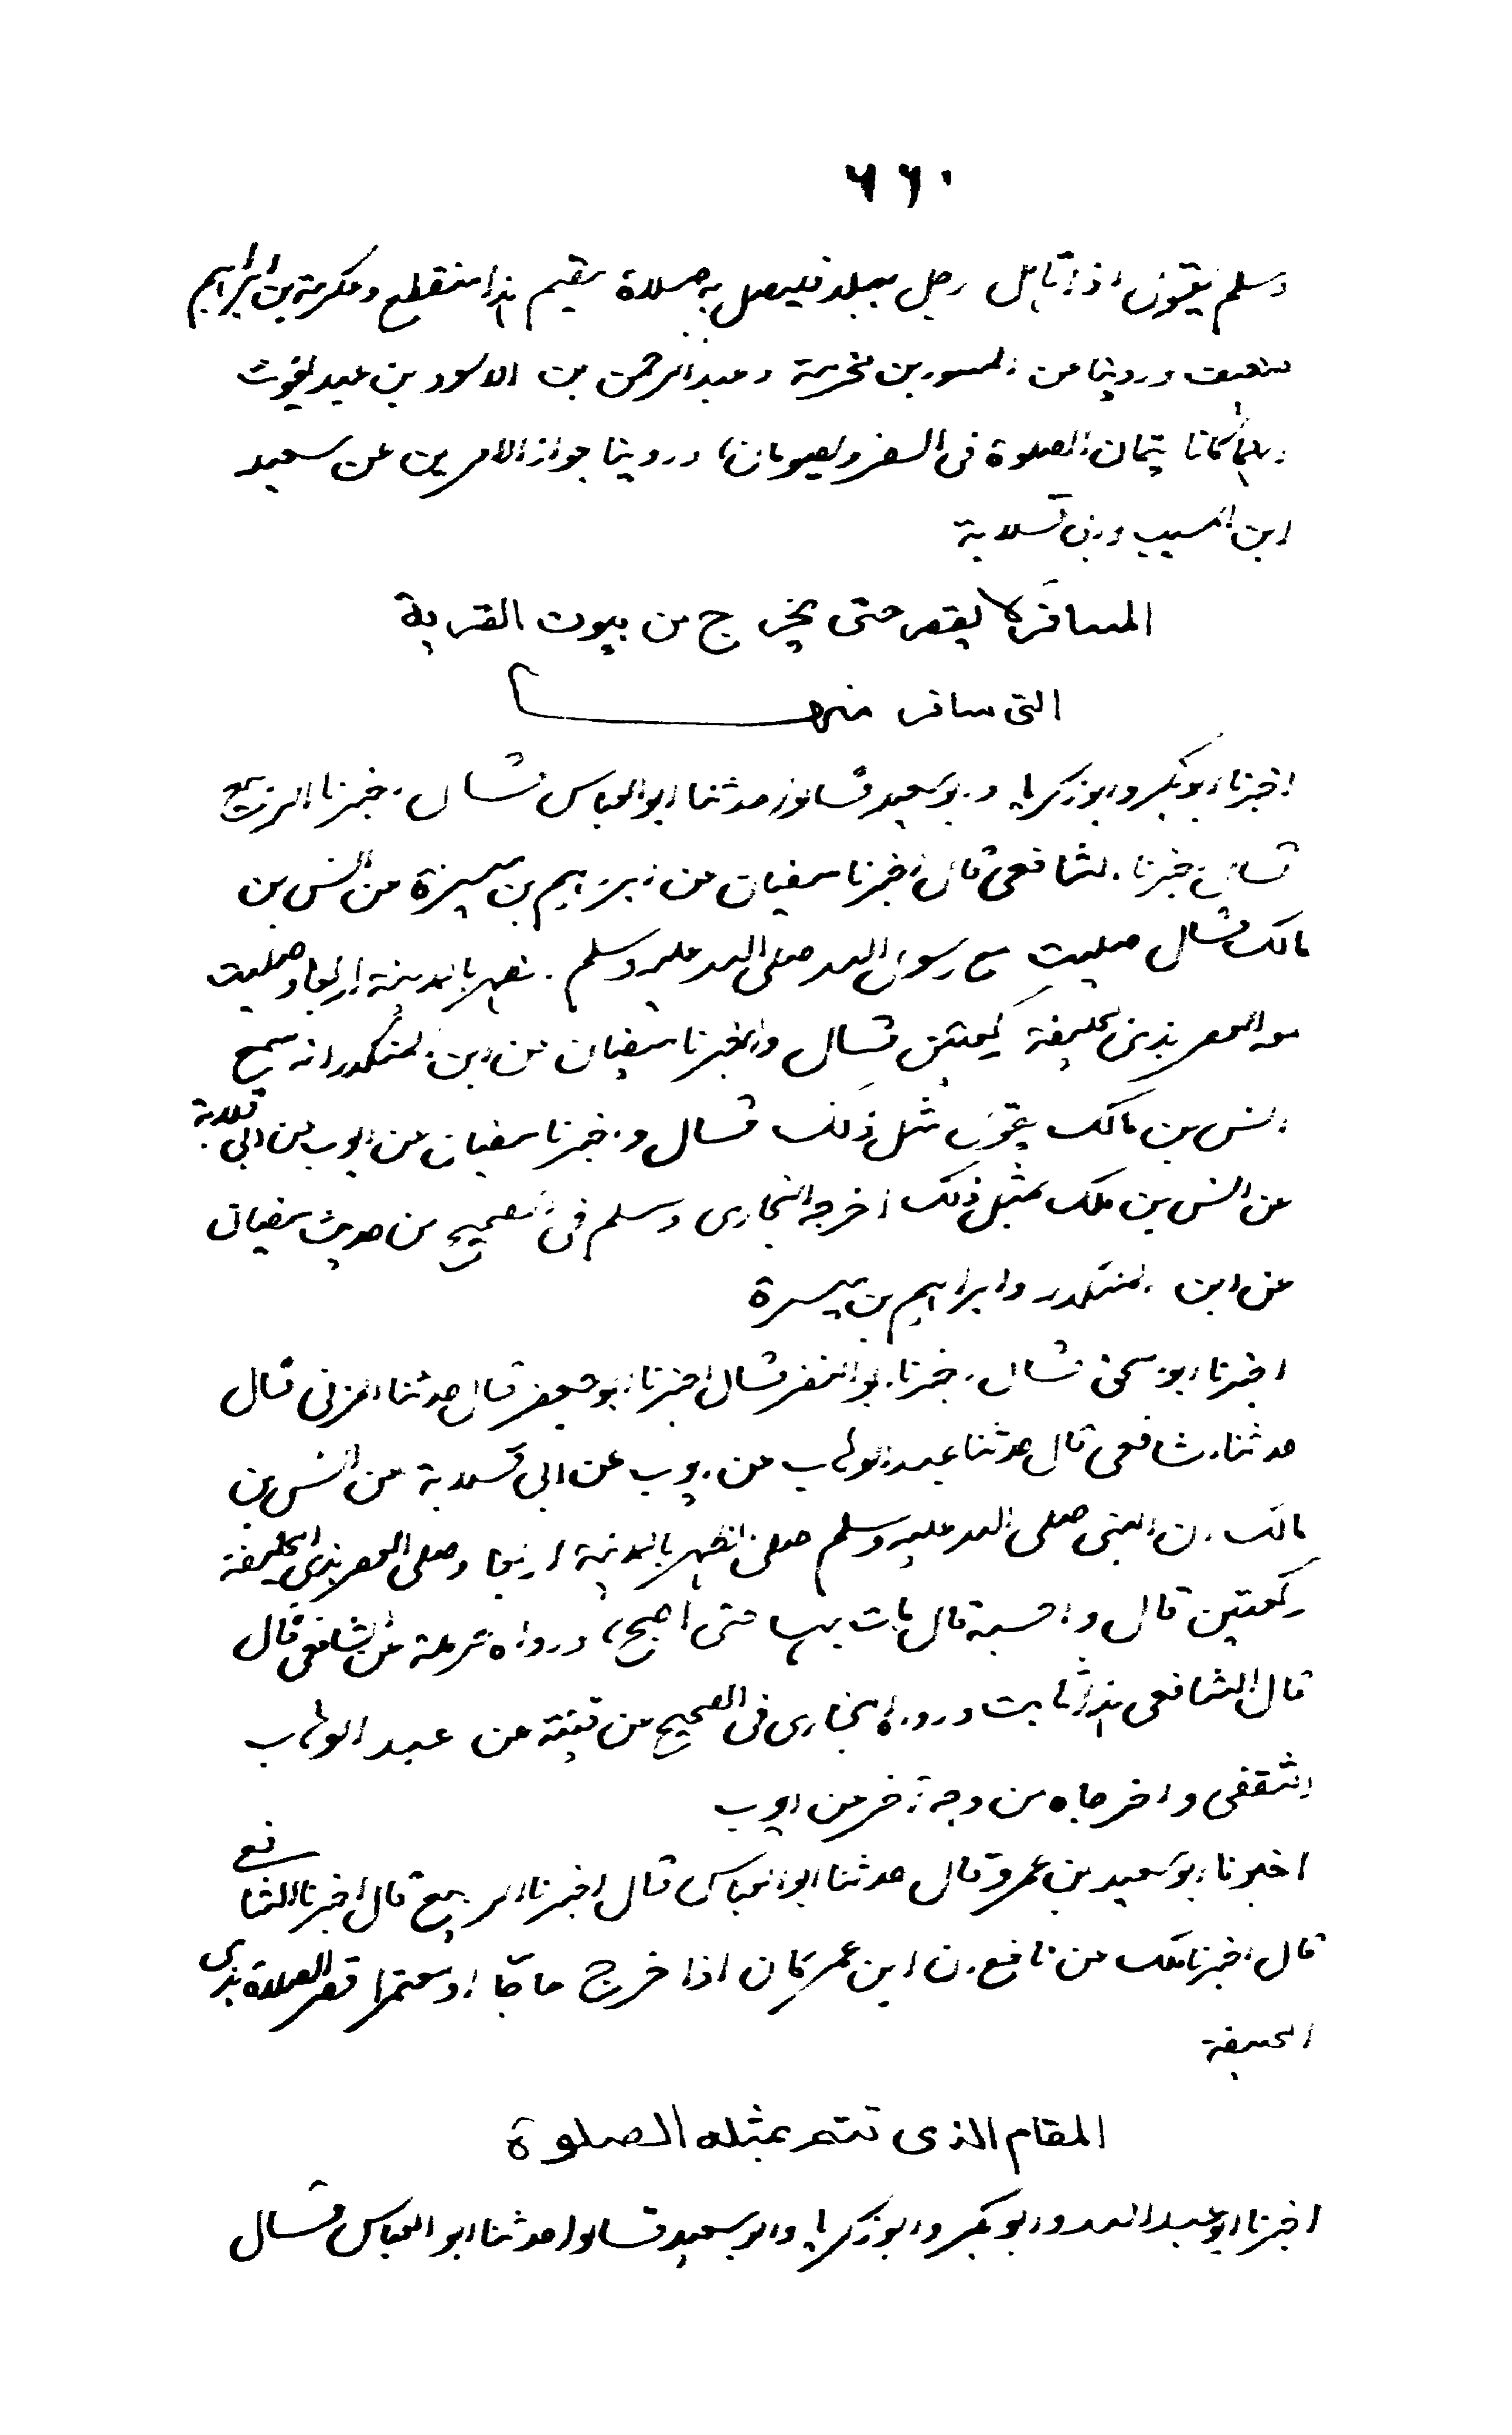 ٦٦٠
وسلم يقول اذا تاهل رجل ببلد فليصل به صلاة مقيم هذا منقطع وعكرمة بن ابراهيم
ضعيف وروينا عن المسور بن مخرمة وعبد الرحمن بن الاسود بن عبد يغوث
انهما كانا يتمان الصلوة فى السفر ويصومان، وروينا جواز الامرين عن سعيد
ابن المسيب وابى قلابة
المسافر لا يقصر حتى يخرج من بيوت القرية
التى سافر منها
اخبرنا ابو بكر وابو زكريا وابو سعيد قالوا حدثنا ابو العباس قال اخبرنا الربيع
قال اخبرنا الشافعى قال اخبرنا سفيان عن ابراهيم بن ميسرة عن انس بن
مالك قال صليت مع رسول الله صلى الله عليه وسلم الظهر بالمدينة اربعا وصليت
معه العصر بذى الحليفة ركعتين قال واخبرنا سفيان عن ابن المنكدر انه سمع
انس بن مالك يقول مثل ذلك قال واخبرنا سفيان عن ايوب عن ابى قلابة
عن انس بن ملك بمثل ذلك اخرجه البخارى ومسلم فى الصحيح من حديث سفيان
عن ابن المنكدر وابراهيم بن ميسرة
اخبرنا ابو اسحق قال اخبرنا ابو النضر قال اخبرنا ابو جعفر قال حدثنا المزنى قال
حدثنا الشافعى قال حدثنا عبد الوهاب عن ايوب عن ابى قلابة عن انس بن
مالك ان النبى صلى الله عليه وسلم صلى الظهر بالمدينة اربعا وصلى العصر بذى الحليفة
ركعتين قال واحسبه قال بات بها حتى اصبح، ورواه حرملة عن الشافعى قال
قال الشافعى هذا ثابت ورواه البخارى فى الصحيح عن قتيبة عن عبد الوهاب
الثقفى واخرجاه من وجه آخر عن ايوب
اخبرنا ابو سعيد بن عمرو قال حدثنا ابو العباس قال اخبرنا الربيع قال اخبرنا الشافعى
قال اخبرنا ملك عن نافع ان ابن عمر كان اذا خرج حاجا او معتمرا قصر الصلاة بذى
الحليفة
المقام الذى تتم بمثله الصلوة
اخبرنا ابو عبد الله وابو بكر وابو زكريا وابو سعيد قالوا حدثنا ابو العباس قال